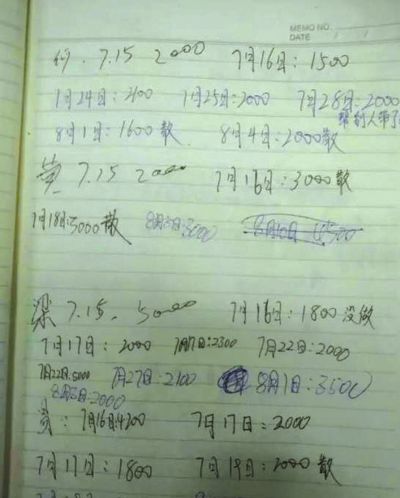 MEMO NO.
DATE
何 7.15 2000 7月16日:1500
7月24日:2100 7月25日:2000 7月28日:2000
帮别人带了
8月1日:1600散 8月4日:2000散
黄 7.15 2000 7月16日:3000散
7月18日:3000散 8月3日:3000
梁 7.15. 5000 7月16日:1800没做
7月17日:2000 7月17日:2300 7月22日:2000
7月22日:5000 7月27日:2100 8月1日:3500
8月3日:2000
7月16日:4200 7月17日:2000
7月17日:1800 7月19日:2000散